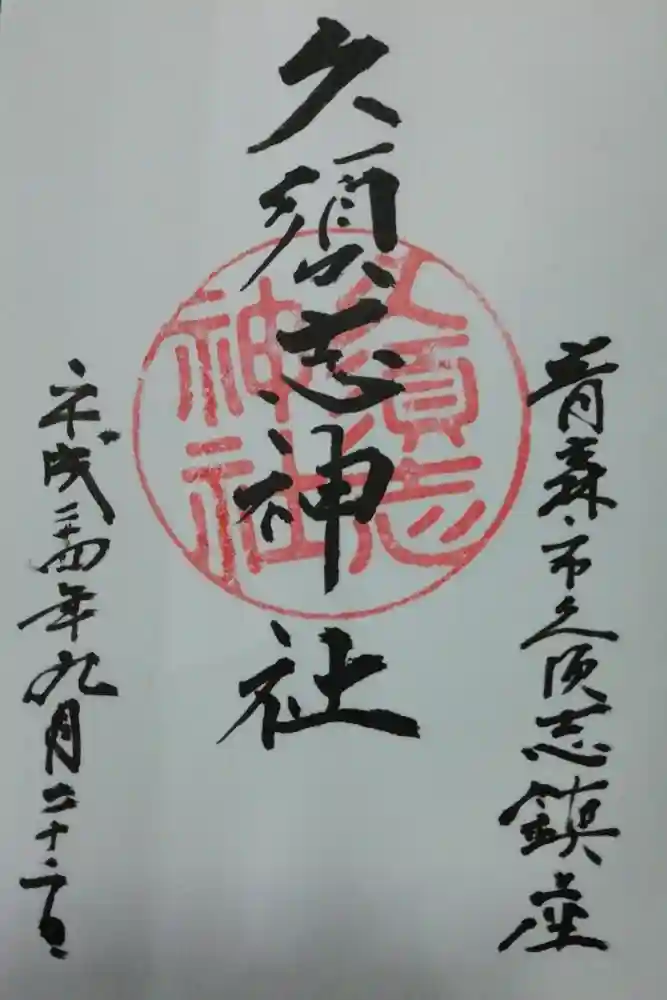 青森市久須志鎮座
久須志神社
久須志
神社
平成二十四年九月二十二日